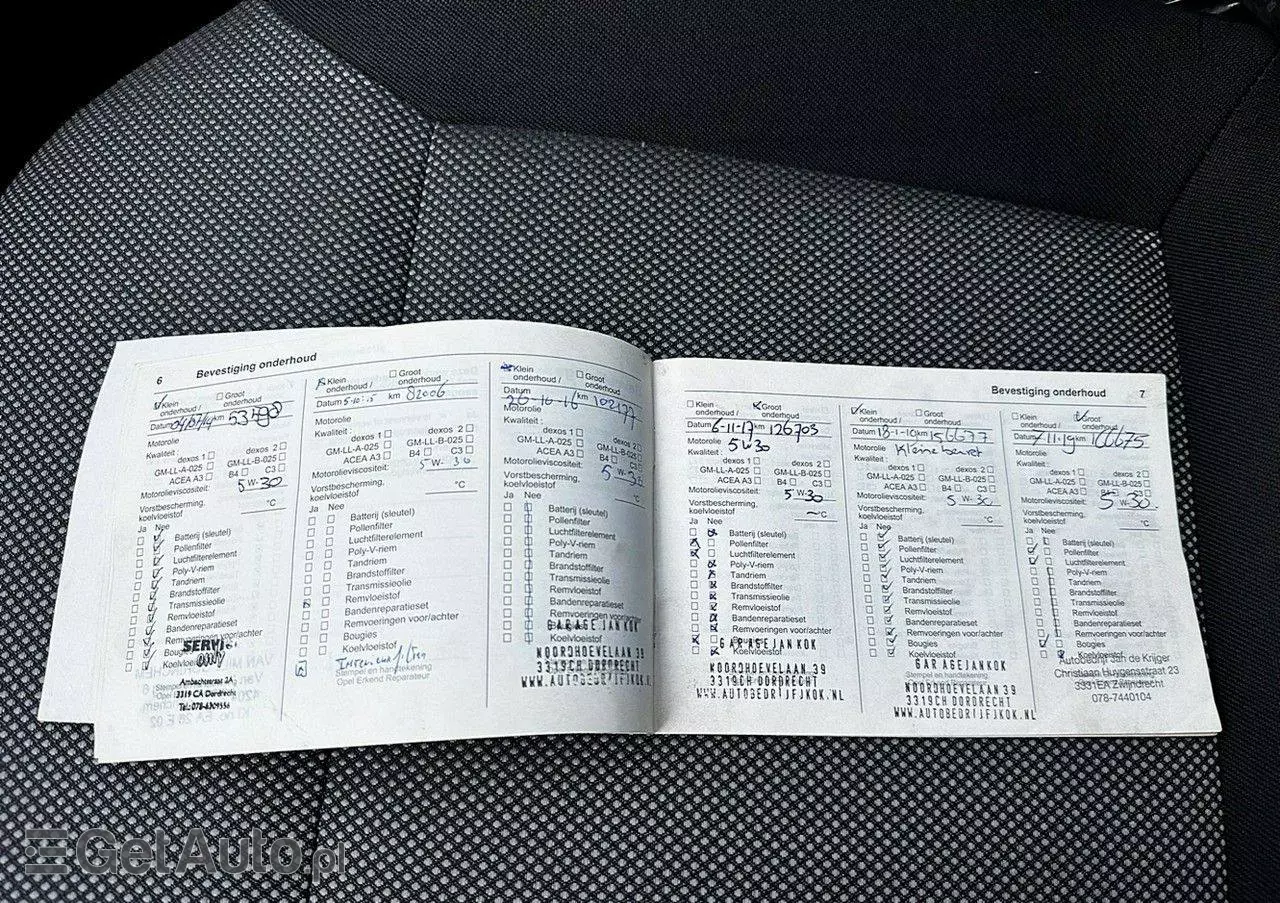 6 Bevestiging onderhoud
Klein onderhoud / Groot onderhoud
Datum km
Motorolie
Kwaliteit :
dexos 1 dexos 2
GM-LL-A-025 GM-LL-B-025
ACEA A3 B4 C3
Motorolieviscositeit: 5 W-30
Vorstbescherming, koelvloeistof °C
Ja Nee
Batterij (sleutel)
Pollenfilter
Luchtfilterelement
Poly-V-riem
Tandriem
Brandstoffilter
Transmissieolie
Remvloeistof
Bandenreparatieset
Remvoeringen voor/achter
Bougies
Koelvloeistof
Ambachtsstraat 2A
3319 CA Dordrecht
Tel: 078-6309556
Klein onderhoud / Groot onderhoud
Datum 5-10-15 km 82006
Motorolie
Kwaliteit :
dexos 1 dexos 2
GM-LL-A-025 GM-LL-B-025
ACEA A3 B4 C3
Motorolieviscositeit: 5 W-30
Vorstbescherming, koelvloeistof °C
Ja Nee
Batterij (sleutel)
Pollenfilter
Luchtfilterelement
Poly-V-riem
Tandriem
Brandstoffilter
Transmissieolie
Remvloeistof
Bandenreparatieset
Remvoeringen voor/achter
Bougies
Koelvloeistof
Stempel en handtekening
Opel Erkend Reparateur
Klein onderhoud / Groot onderhoud
Datum 26-10-16 km 102177
Motorolie
Kwaliteit :
dexos 1 dexos 2
GM-LL-A-025 GM-LL-B-025
ACEA A3 B4 C3
Motorolieviscositeit: 5 W-30
Vorstbescherming, koelvloeistof °C
Ja Nee
Batterij (sleutel)
Pollenfilter
Luchtfilterelement
Poly-V-riem
Tandriem
Brandstoffilter
Transmissieolie
Remvloeistof
Bandenreparatieset
Remvoeringen voor/achter
Bougies
Koelvloeistof
GARAGE JAN KOK
NOORDHOEVELAAN 39
3319CH DORDRECHT
Bevestiging onderhoud 7
Klein onderhoud / Groot onderhoud
Datum 6-11-17 km 126703
Motorolie 5W30
Kwaliteit :
dexos 1 dexos 2
GM-LL-A-025 GM-LL-B-025
ACEA A3 B4 C3
Motorolieviscositeit: 5 W-30
Vorstbescherming, koelvloeistof °C
Ja Nee
Batterij (sleutel)
Pollenfilter
Luchtfilterelement
Poly-V-riem
Tandriem
Brandstoffilter
Transmissieolie
Remvloeistof
Bandenreparatieset
Remvoeringen voor/achter
Bougies
Koelvloeistof
GARAGE JAN KOK
NOORDHOEVELAAN 39
3319CH DORDRECHT
WWW.AUTOBEDRIJFJKOK.NL
Klein onderhoud / Groot onderhoud
Datum km
Motorolie Kleine beurt
Kwaliteit :
dexos 1 dexos 2
GM-LL-A-025 GM-LL-B-025
ACEA A3 B4 C3
Motorolieviscositeit: 5 W-30
Vorstbescherming, koelvloeistof °C
Ja Nee
Batterij (sleutel)
Pollenfilter
Luchtfilterelement
Poly-V-riem
Tandriem
Brandstoffilter
Transmissieolie
Remvloeistof
Bandenreparatieset
Remvoeringen voor/achter
Bougies
Koelvloeistof
GARAGE JAN KOK
NOORDHOEVELAAN 39
3319CH DORDRECHT
WWW.AUTOBEDRIJFJKOK.NL
Klein onderhoud / Groot onderhoud
Datum 7-11-19 km 166675
Motorolie
Kwaliteit :
dexos 1 dexos 2
GM-LL-A-025 GM-LL-B-025
ACEA A3 B4 C3
Motorolieviscositeit: 5 W-30
Vorstbescherming, koelvloeistof °C
Ja Nee
Batterij (sleutel)
Pollenfilter
Luchtfilterelement
Poly-V-riem
Tandriem
Brandstoffilter
Transmissieolie
Remvloeistof
Bandenreparatieset
Remvoeringen voor/achter
Bougies
Koelvloeistof
Autobedrijf Jan de Krijger
Christiaan Huygensstraat 23
3331EA Zwijndrecht
078-7440104
GetAuto.pl